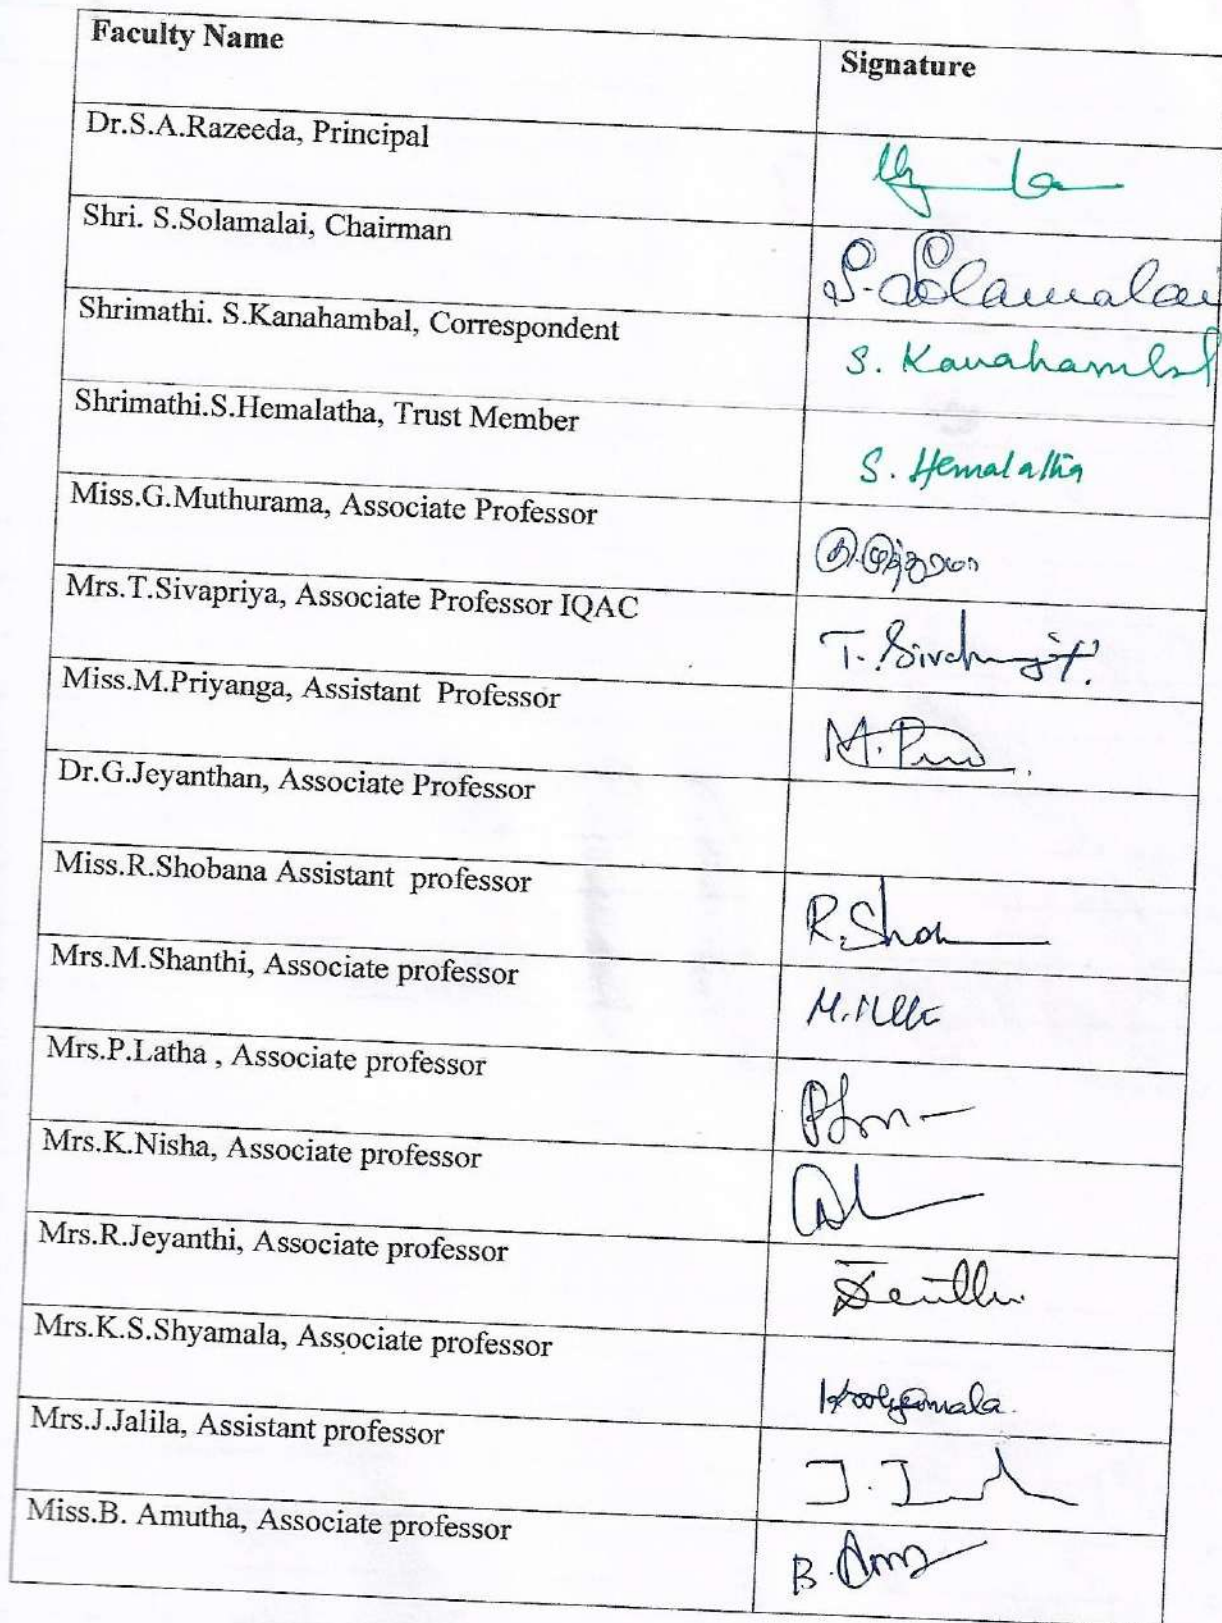 Faculty Name
Signature
Dr.S.A.Razeeda, Principal
Shri. S.Solamalai, Chairman
S. Solamalai
Shrimathi. S.Kanahambal, Correspondent
S. Kanahambal
Shrimathi.S.Hemalatha, Trust Member
S. Hemalatha
Miss.G.Muthurama, Associate Professor
Mrs.T.Sivapriya, Associate Professor IQAC
Miss.M.Priyanga, Assistant Professor
Dr.G.Jeyanthan, Associate Professor
Miss.R.Shobana Assistant professor
Mrs.M.Shanthi, Associate professor
Mrs.P.Latha , Associate professor
Mrs.K.Nisha, Associate professor
Mrs.R.Jeyanthi, Associate professor
Mrs.K.S.Shyamala, Associate professor
Mrs.J.Jalila, Assistant professor
Miss.B. Amutha, Associate professor